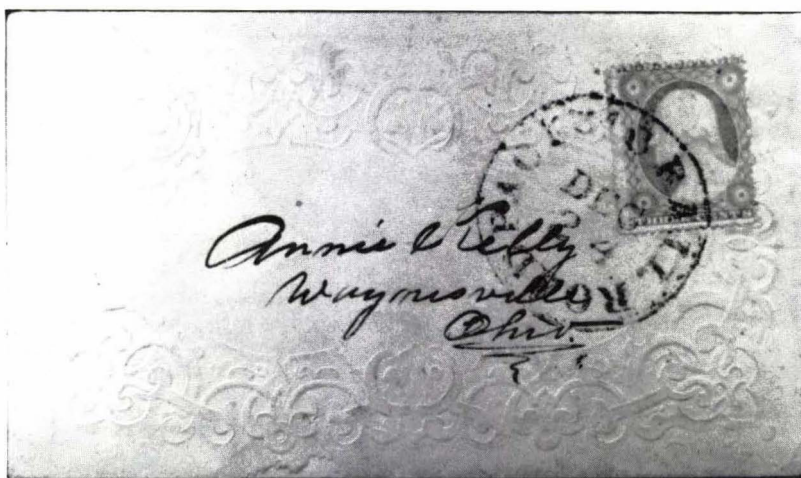 DEC
24
Annie Kelly
Waynesville
Ohio.